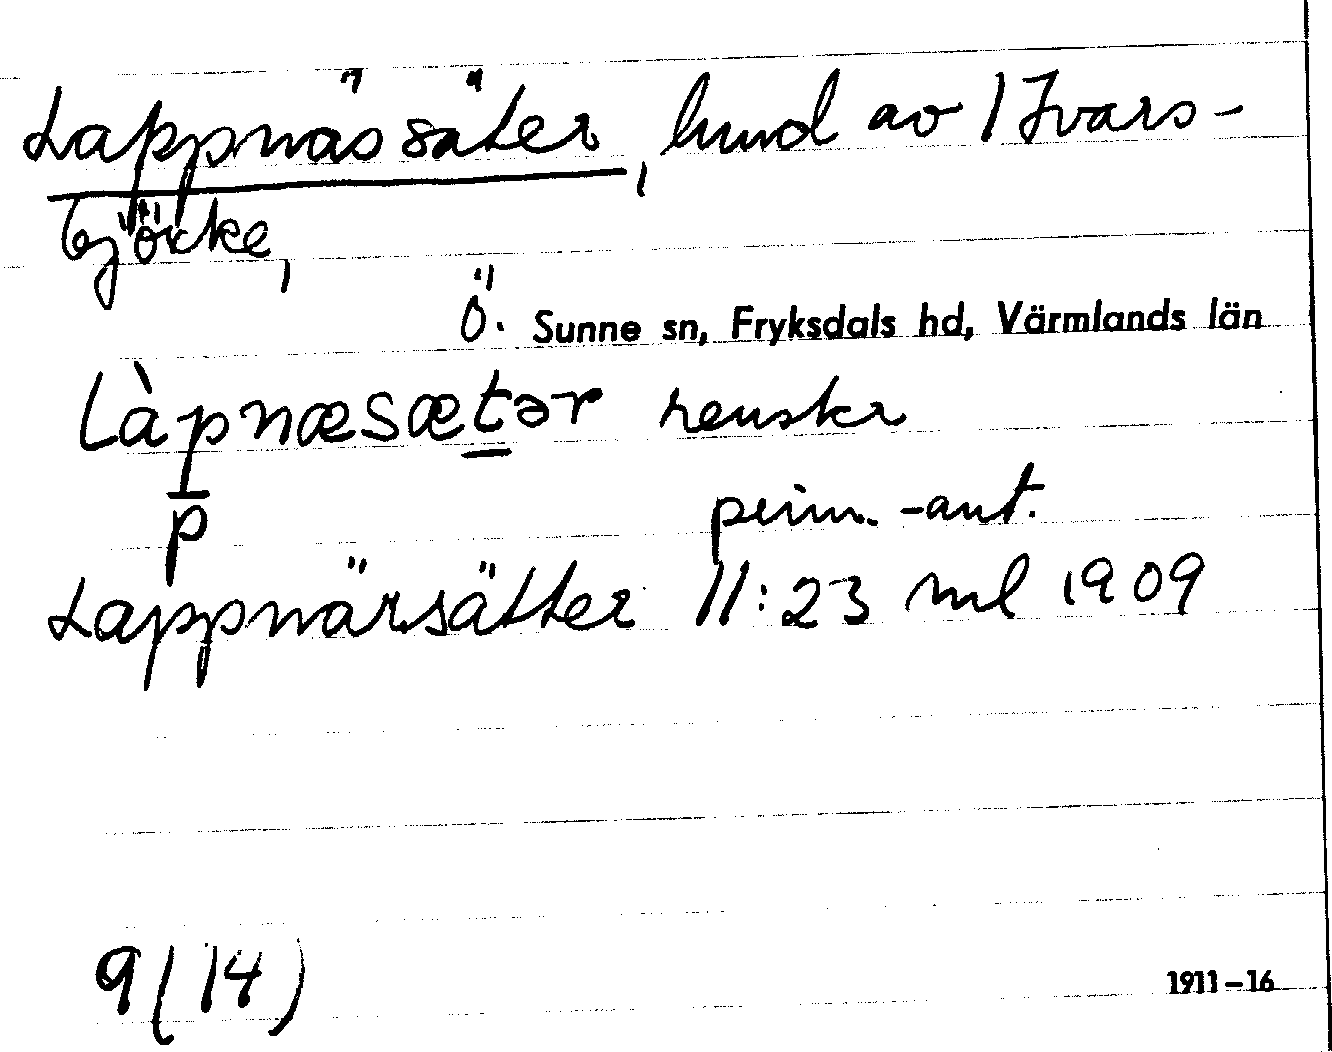 Lappnässäter, hmd av 1 Ivars-
björke,
Ö. Sunne sn, Fryksdals hd, Värmlands län
Làpnæsætər renskr
p prim.-ant.
Lappnärsätter 11:23 ml 1909
9(14)
1911–16